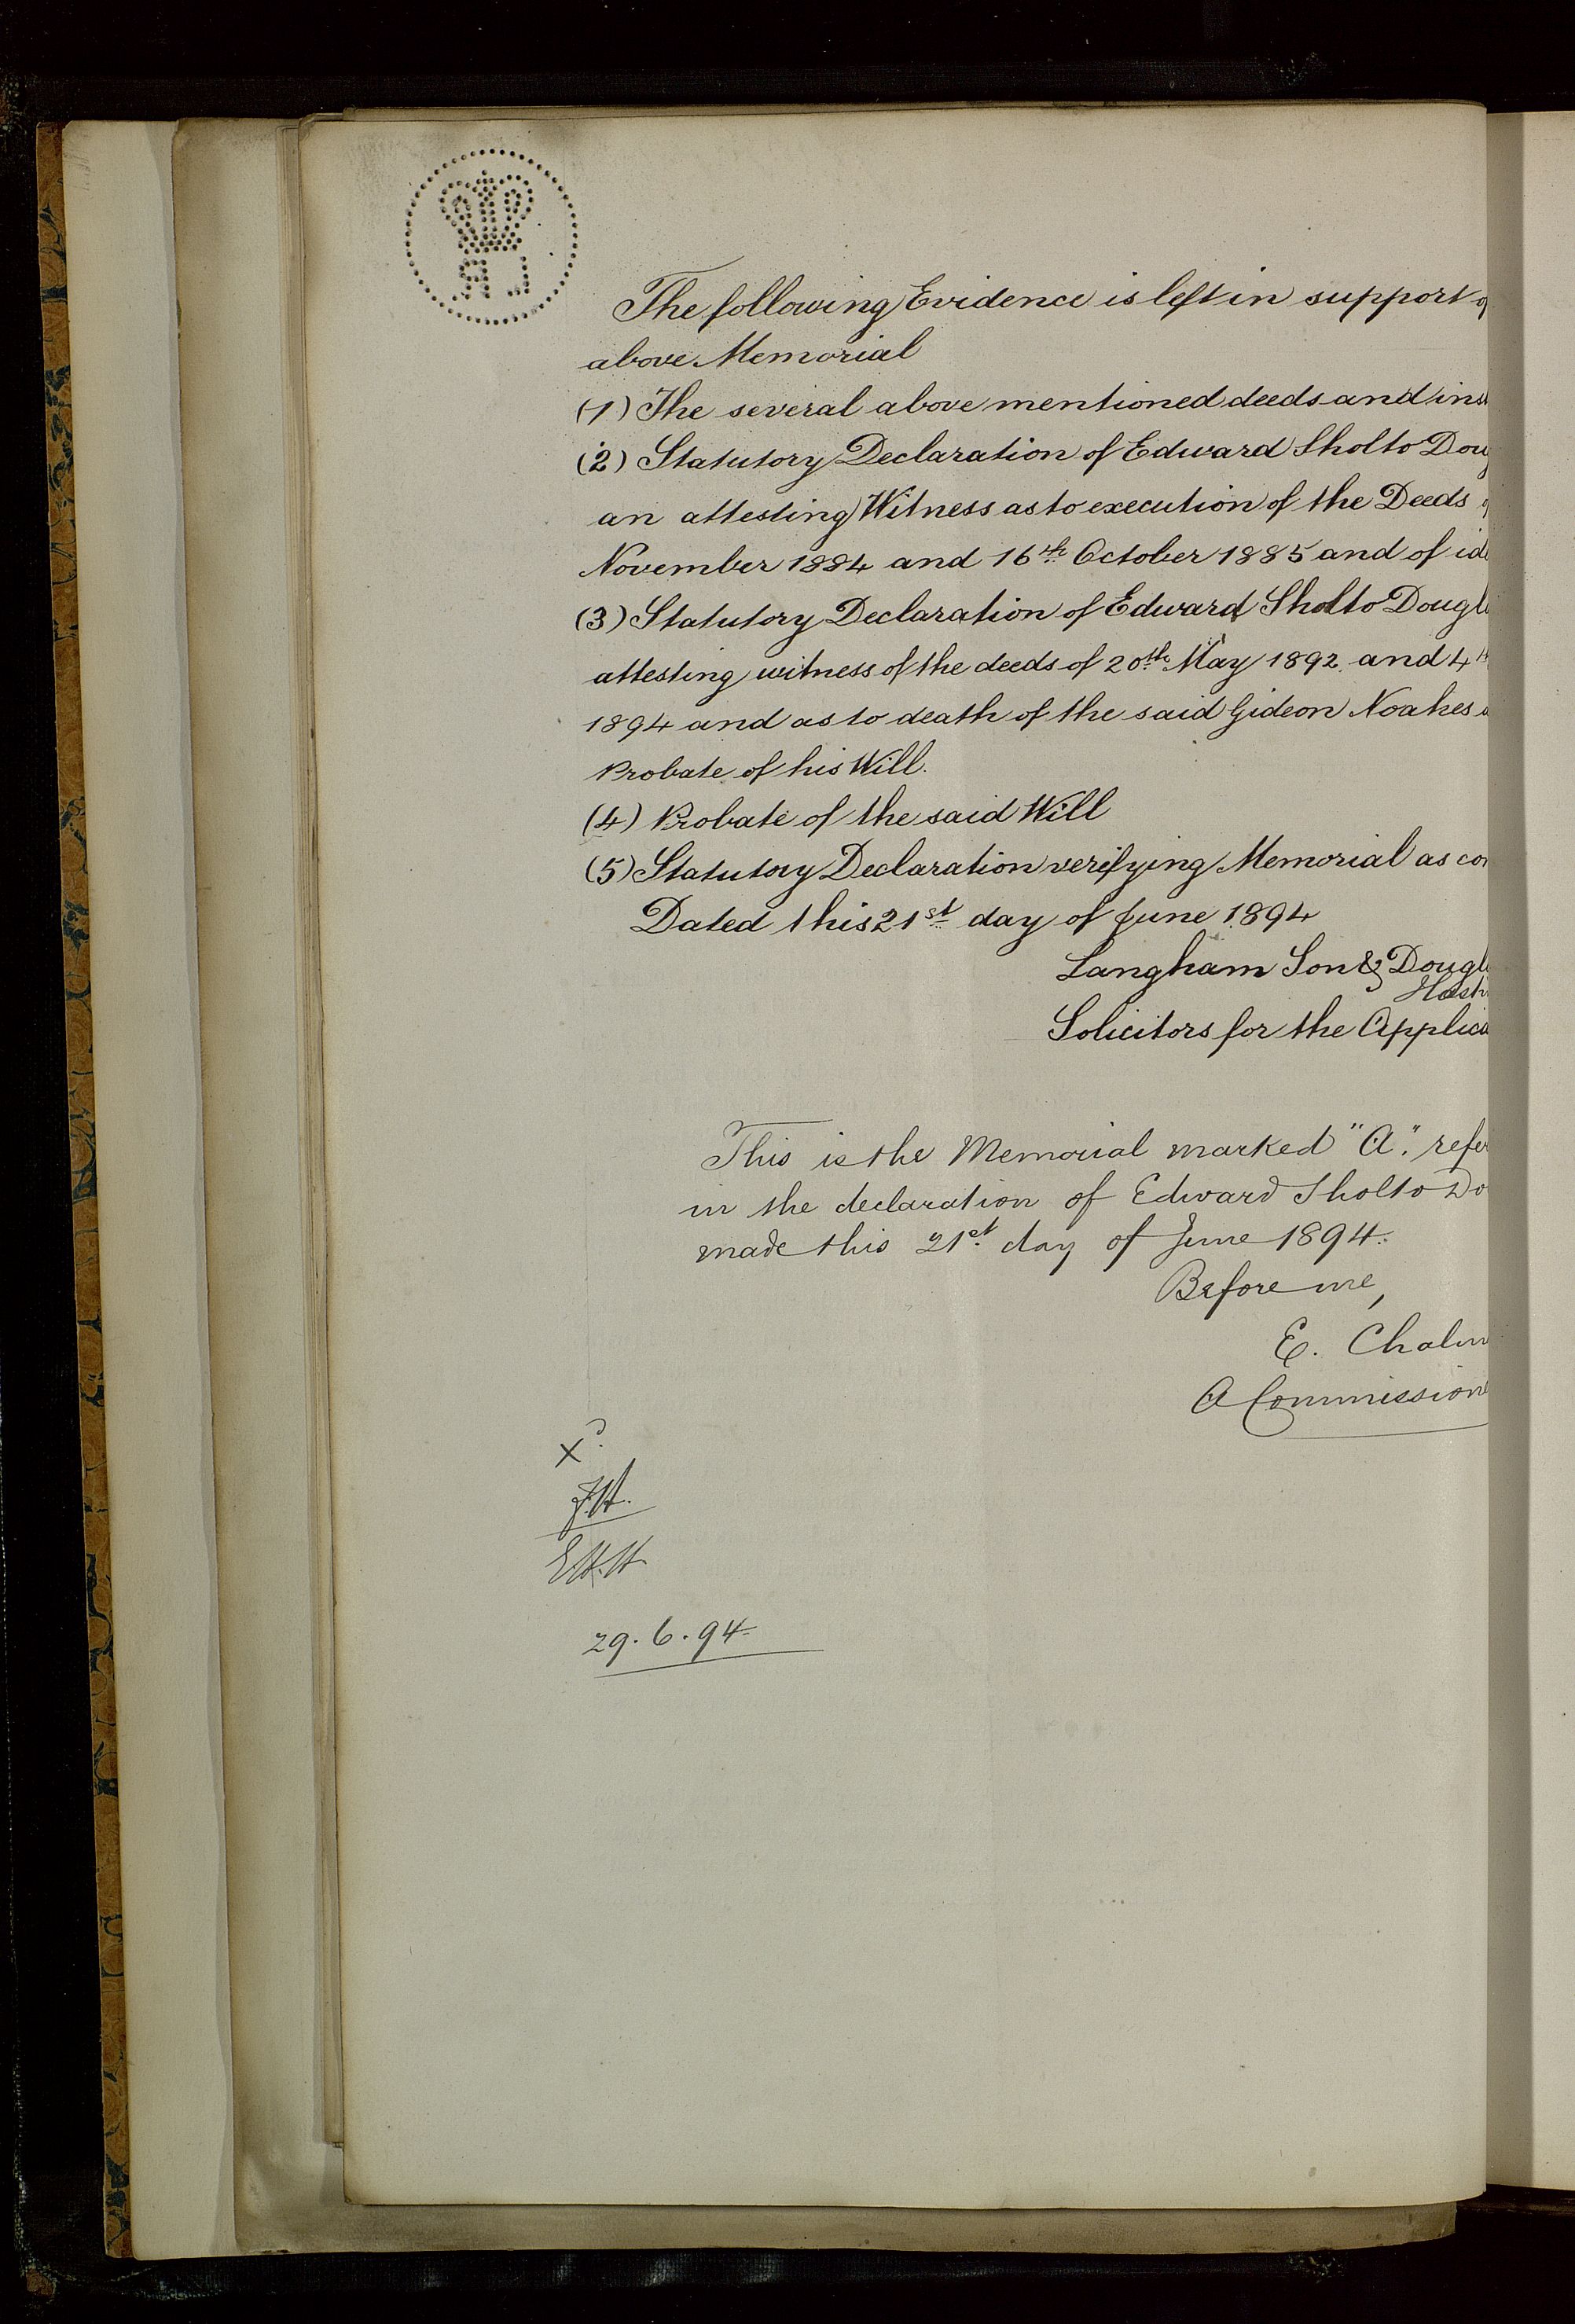 The following Evidence is left in support
above Memorial
(1) The several above mentioned deeds and
(2) Statutory Declaration of Edward Sholto
an attesting Witness as to execution of the Deeds
November 1884 and 16th October 1885 and of
(3) Statutory Declaration of Edward Sholto
attesting witness of the deeds of 20th May 1892 and 4
1894 and as to death of the said Gideon Noakes
Probate of his Will.
(4) Probate of the said Will
(5) Statutory Declaration verifying Memorial as
Dated this 21st day of June 1894
Langham Son &
Solicitors for the
This is the Memorial marked "A".
in the declaration of Edward Sholto
made this 21st day of June 1894.
Before me,
E.
A
X
E.H.H
29.6.94